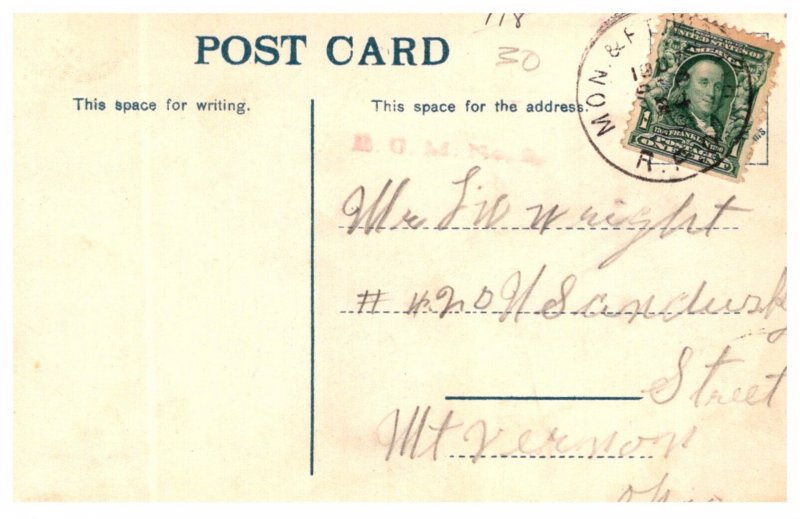 118
POST CARD
30
This space for writing.
This space for the address.
MON. & F
190
R.P.
UNITED STATES OF
AMERICA
1706 FRANKLIN 1790
POSTAGE
ONE
Mr
Wright
# 420 N Sandusky
Street
Mt Vernon
Ohio